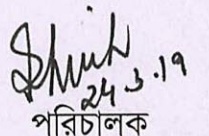 24.3.19
পরিচালক